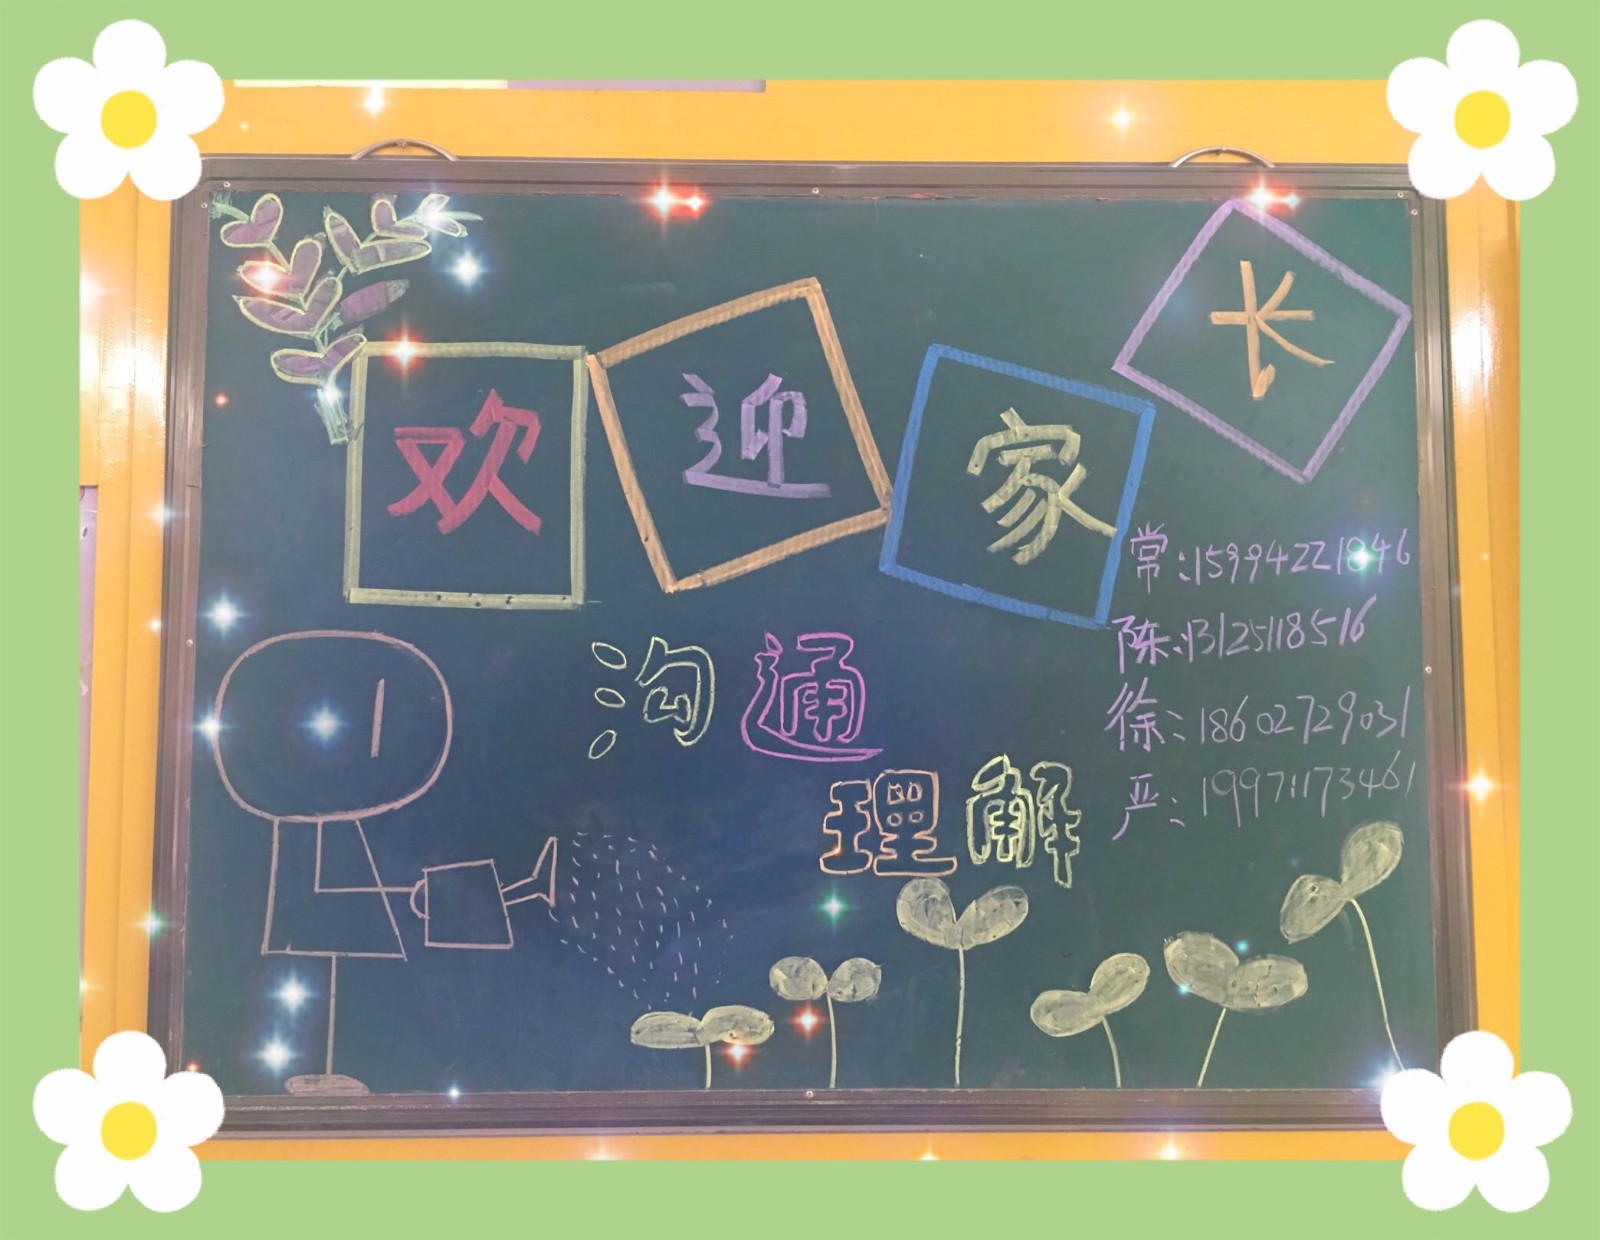 欢迎家长
沟通
理解
常:15994221846
陈:13125118516
徐:18602729031
严:19971173461